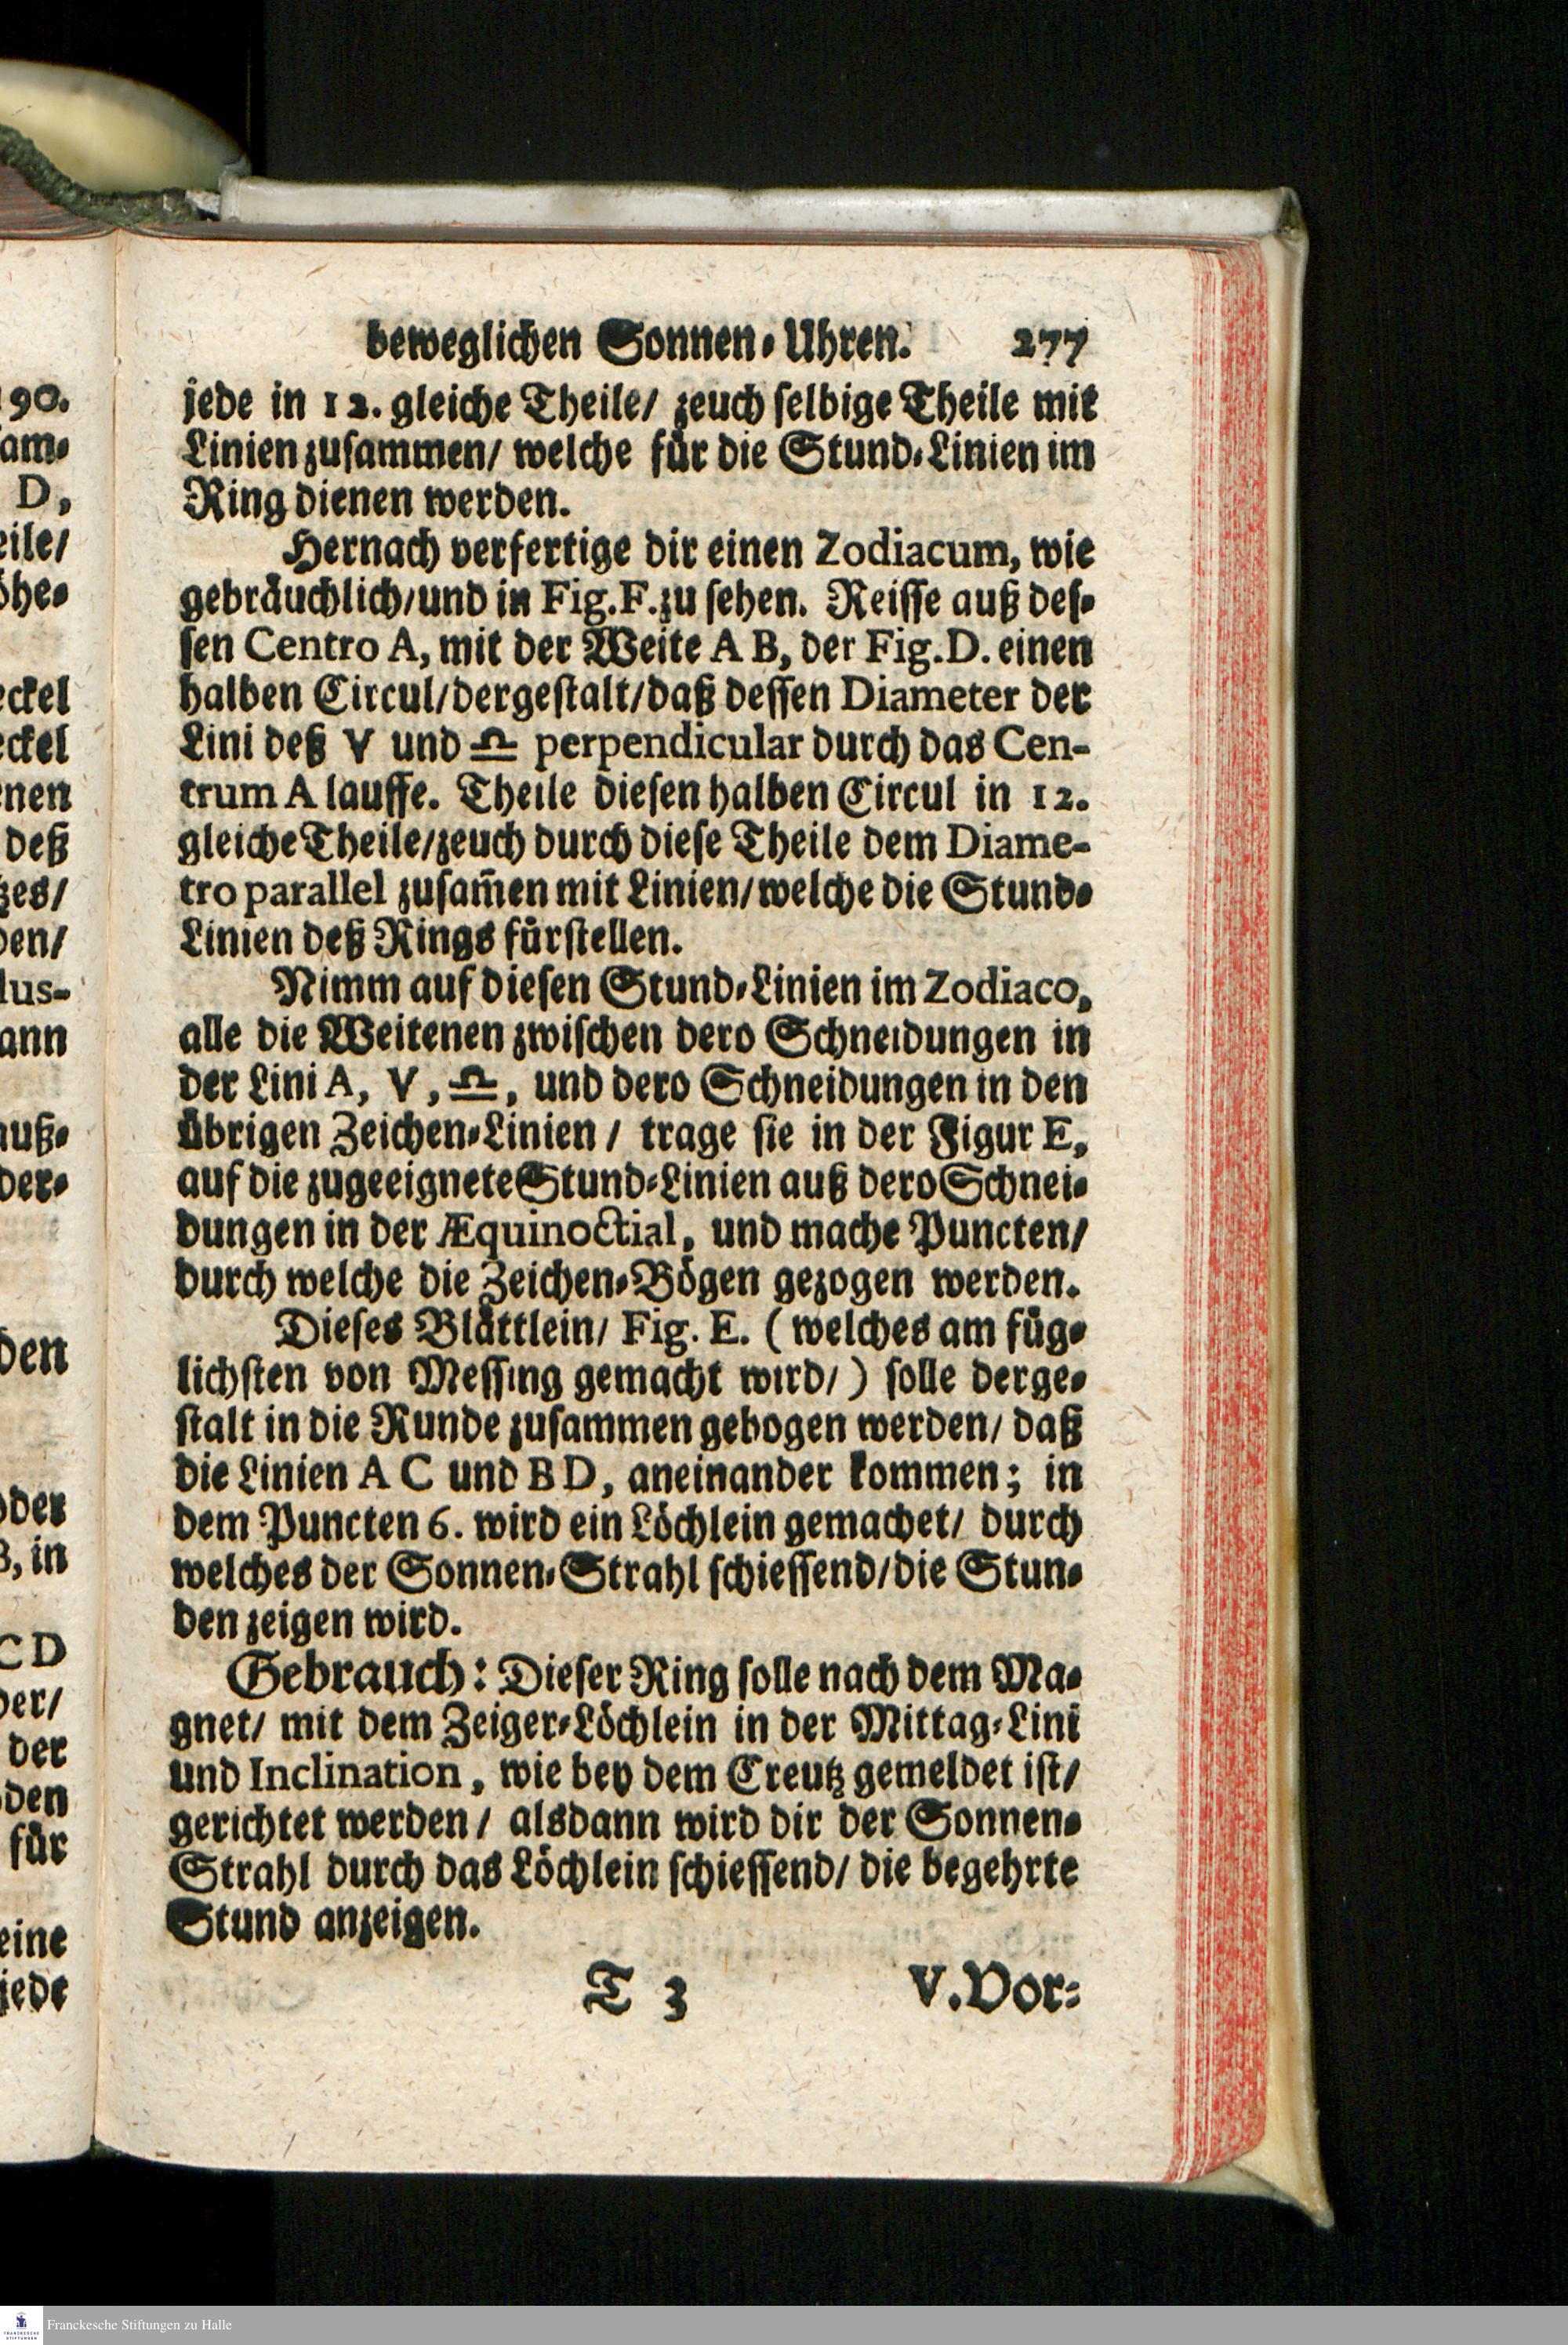 beweglichen Sonnen-Uhren. 277
jede in 12. gleiche Theile/ zeuch selbige Theile mit
Linien zusammen/ welche für die Stund-Linien im
Ring dienen werden.
Hernach verfertige dir einen Zodiacum, wie
gebräuchlich/und in Fig.F.zu sehen. Reisse auß des-
sen Centro A, mit der Weite A B, der Fig.D. einen
halben Circul/dergestalt/daß dessen Diameter der
Lini deß ♈ und ♎ perpendicular durch das Cen-
trum A lauffe. Theile diesen halben Circul in 12.
gleiche Theile/zeuch durch diese Theile dem Diame-
tro parallel zusam̃en mit Linien/welche die Stund-
Linien deß Rings fürstellen.
Nimm auf diesen Stund-Linien im Zodiaco,
alle die Weitenen zwischen dero Schneidungen in
der Lini A, ♈, ♎, und dero Schneidungen in den
übrigen Zeichen-Linien / trage sie in der Figur E,
auf die zugeeignete Stund-Linien auß dero Schnei-
dungen in der Æquinoctial, und mache Puncten/
durch welche die Zeichen-Bögen gezogen werden.
Dieses Blättlein/ Fig. E. ( welches am füg-
lichsten von Messing gemacht wird/ ) solle derge-
stalt in die Runde zusammen gebogen werden/ daß
die Linien A C und B D, aneinander kommen; in
dem Puncten 6. wird ein Löchlein gemachet/ durch
welches der Sonnen-Strahl schiessend/die Stun-
den zeigen wird.
Gebrauch: Dieser Ring solle nach dem Ma-
gnet/ mit dem Zeiger-Löchlein in der Mittag-Lini
und Inclination, wie bey dem Creutz gemeldet ist/
gerichtet werden / alsdann wird dir der Sonnen-
Strahl durch das Löchlein schiessend/ die begehrte
Stund anzeigen.
T 3 V. Vor-
90.
am-
D,
eile/
öhe-
eckel
eckel
nen
deß
zes/
den/
lus-
ann
auß-
der-
den
oder
B, in
C D
der/
der
den
für
eine
jede
Franckesche Stiftungen zu Halle